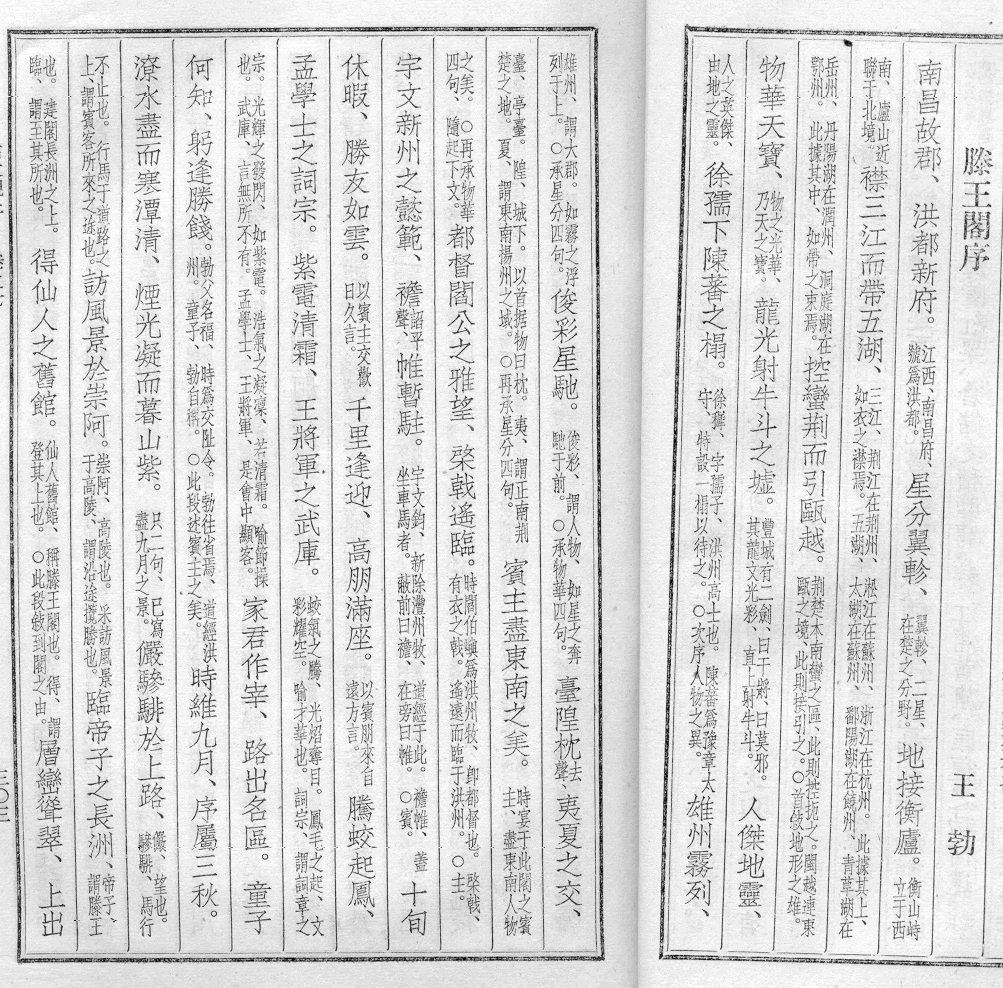 滕王閣序　王勃
南昌故郡、洪都新府。江西、南昌府、號爲洪都。星分翼軫、翼軫、二星、在楚之分野。地接衡廬。衡山峙立于西
南、廬山近聯于北境。襟三江而帶五湖、三江、荆江在荆州、淞江在蘇州、浙江在杭州。此據其上、如衣之襟焉。五湖、太湖在蘇州、鄱陽湖在饒州、青草湖在
岳州、丹陽湖在潤州、洞庭湖在鄂州。此據其中、如帶之束焉。控蠻荆而引甌越。荆楚本南蠻之區、此則控扼之。閩越連東甌之境、此則接引之。○首敘地形之雄。
物華天寶、物之光華、乃天之寶。龍光射牛斗之墟。豐城有二劍、曰干將、曰莫邪。其龍文光彩、直上射牛斗。人傑地靈、
人之英傑、由地之靈。徐孺下陳蕃之榻。徐穉、字孺子、洪州高士也。陳蕃爲豫章太守、特設一榻以待之。○次序人物之異。雄州霧列、
雄州、謂大郡。如霧之浮列于上。○承星分四句。俊彩星馳。俊彩、謂人物、如星之奔馳于前。○承物華四句。臺隍枕去聲、夷夏之交、
臺、亭臺。隍、城下。以首据物曰枕。夷、謂正南荆楚之地。夏、謂東南揚州之域。○再承星分四句。賓主盡東南之美。時宴于此閣之賓主、盡東南人物
之美。○再承物華四句、隨起下文。都督閻公之雅望、棨戟遙臨。時閻伯嶼爲洪州牧、卽都督也。棨戟、有衣之戟。遙遠而臨于洪州。○主。
宇文新州之懿範、襜詔平聲、帷暫駐。宇文鈞、新除灃州牧、道經于此。襜帷、蓋坐車馬者。蔽前曰襜、在旁曰帷。○賓。十旬
休暇、勝友如雲。以賓主交歡日久言。千里逢迎、高朋滿座。以賓朋來自遠方言。騰蛟起鳳、
孟學士之詞宗。紫電清霜、王將軍之武庫。蛟氣之騰、光焰奪日。鳳毛之起、文彩耀空。喻才華也。詞宗、謂詞章之
宗。光輝之發閃、如紫電。浩氣之凝凜、若清霜。喻節操也。武庫、言無所不有。孟學士、王將軍、是會中顯客。家君作宰、路出名區。童子
何知、躬逢勝餞。勃父名福、時爲交趾令。勃往省焉、道經洪州。童子、勃自稱。○此段述賓主之美。時維九月、序屬三秋。
潦水盡而寒潭清、煙光凝而暮山紫。只二句、已寫盡九月之景。儼驂騑於上路、儼、望也。驂騑、馬行
不止也。行馬于道路之上、謂賓客所來之途也。訪風景於崇阿。崇阿、高陵也。采訪風景于高陵、謂沿途攬勝也。臨帝子之長洲、帝子、謂滕王
也。建閣長洲之上。臨、謂王其所也。得仙人之舊館。仙人舊館、稱滕王閣也。得、謂登其上也。○此段敘到閣之由。層巒聳翠、上出